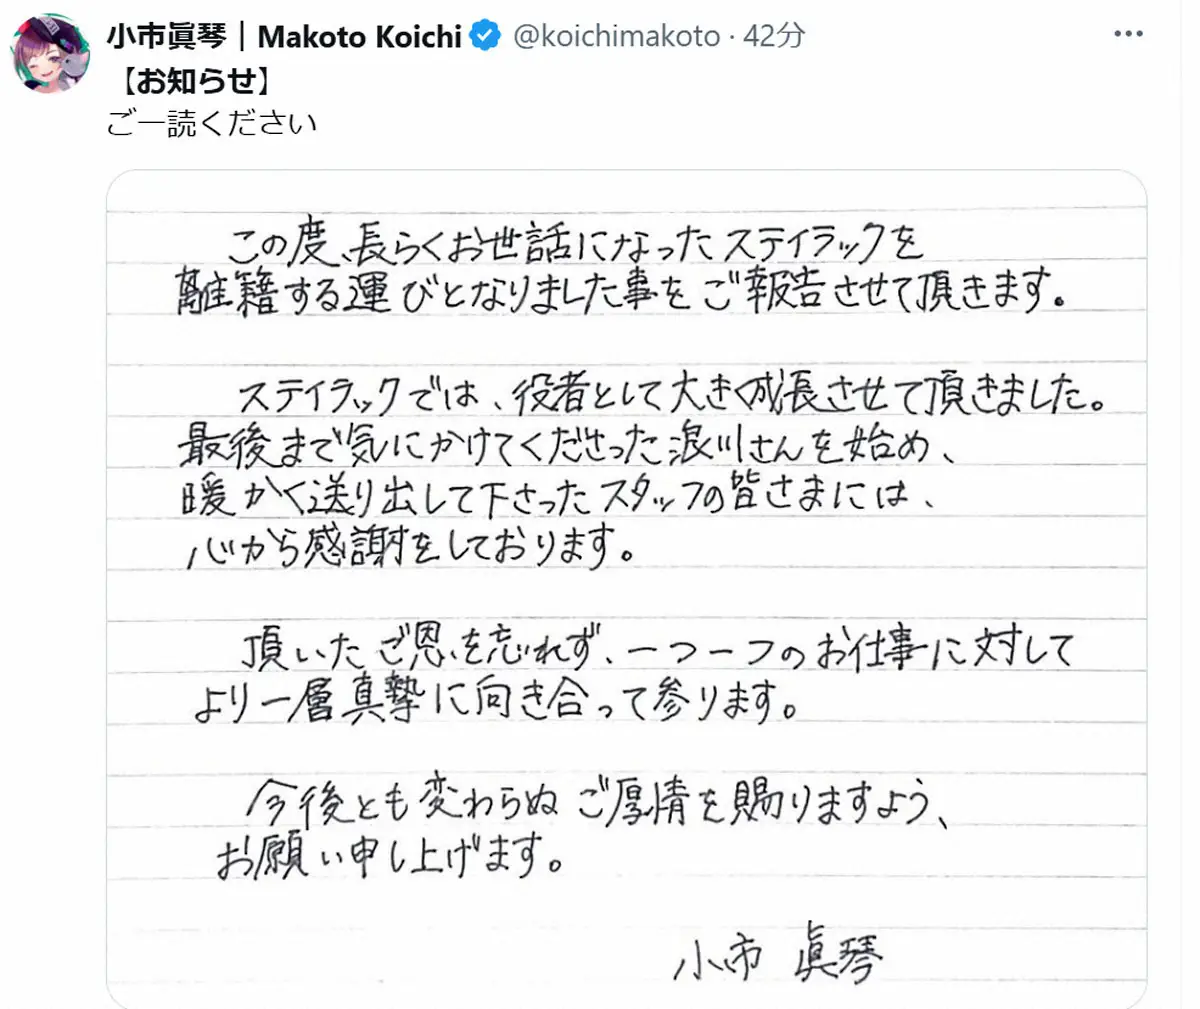 小市眞琴｜Makoto Koichi @koichimakoto · 42分
【お知らせ】
ご一読ください
この度、長らくお世話になったステイラックを
離籍する運びとなりました事をご報告させて頂きます。
ステイラックでは、役者として大きく成長させて頂きました。
最後まで気にかけてくださった浪川さんを始め、
暖かく送り出して下さったスタッフの皆さまには、
心から感謝をしております。
頂いたご恩を忘れず、一つ一つのお仕事に対して
より一層真摯に向き合って参ります。
今後とも変わらぬご厚情を賜りますよう、
お願い申し上げます。
小市 眞琴